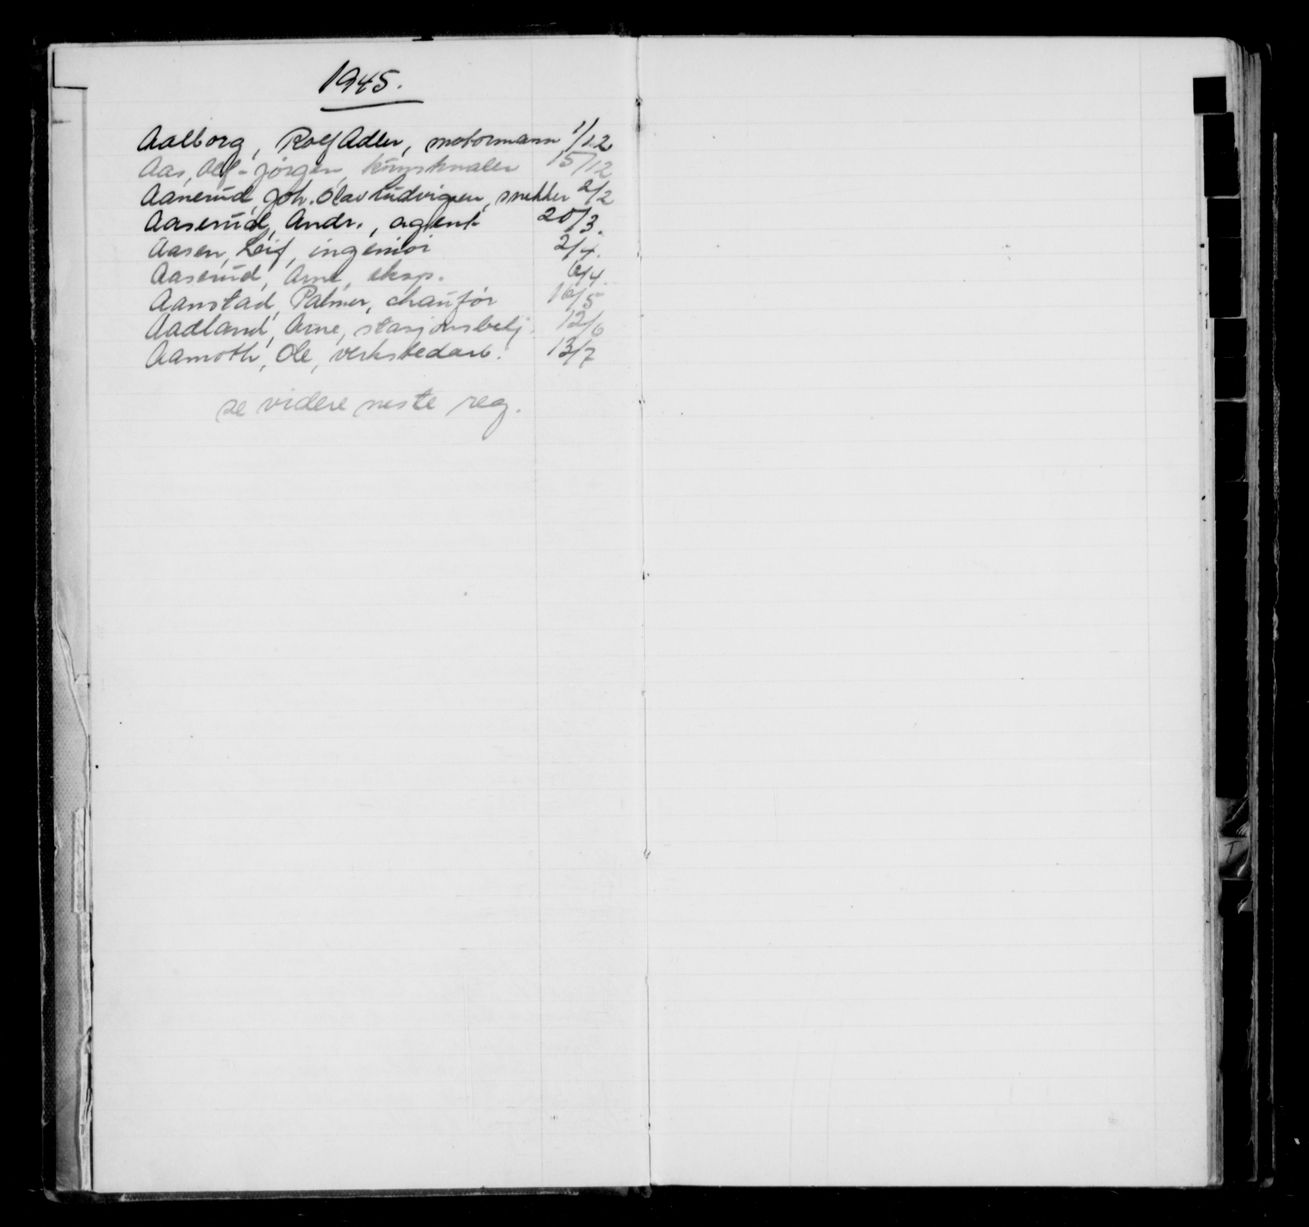 1945.
Aalborg, Rolf Adler, motormann 1/12
Aas, Alf-Jørgen, kunstmaler 15/12
Aanerud, Joh. Olav Ludvigsen, snekker 2/2
Aaserud, Andr., agent 20/3.
Aasen, Leif, ingeniør 2/4.
Aaserud, Arne, eksp. 6/4.
Aanstad, Palmer, chauför 16/5
Aadland, Arne, stasjonsbetj. 12/6
Aamoth, Ole, verkstedarb. 13/7
se videre neste reg.